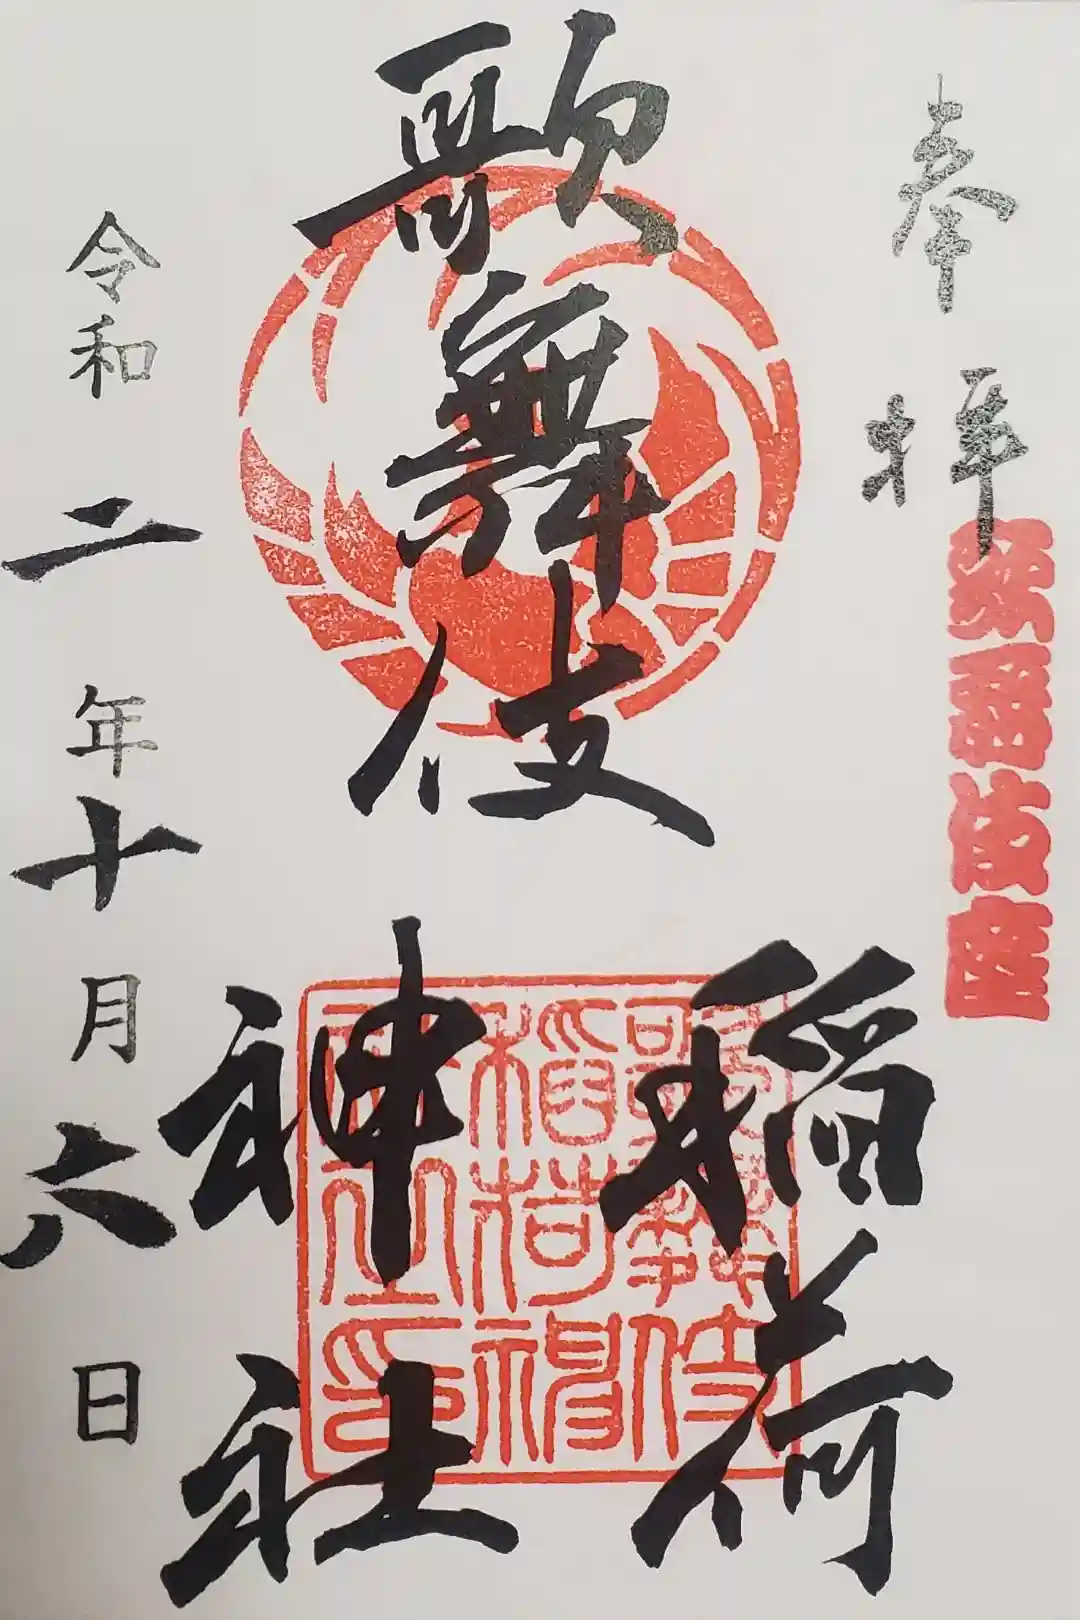 奉拝
歌舞伎座
歌舞伎
稲荷
神社
歌舞伎
稲荷神
社之印
令和二年十月六日